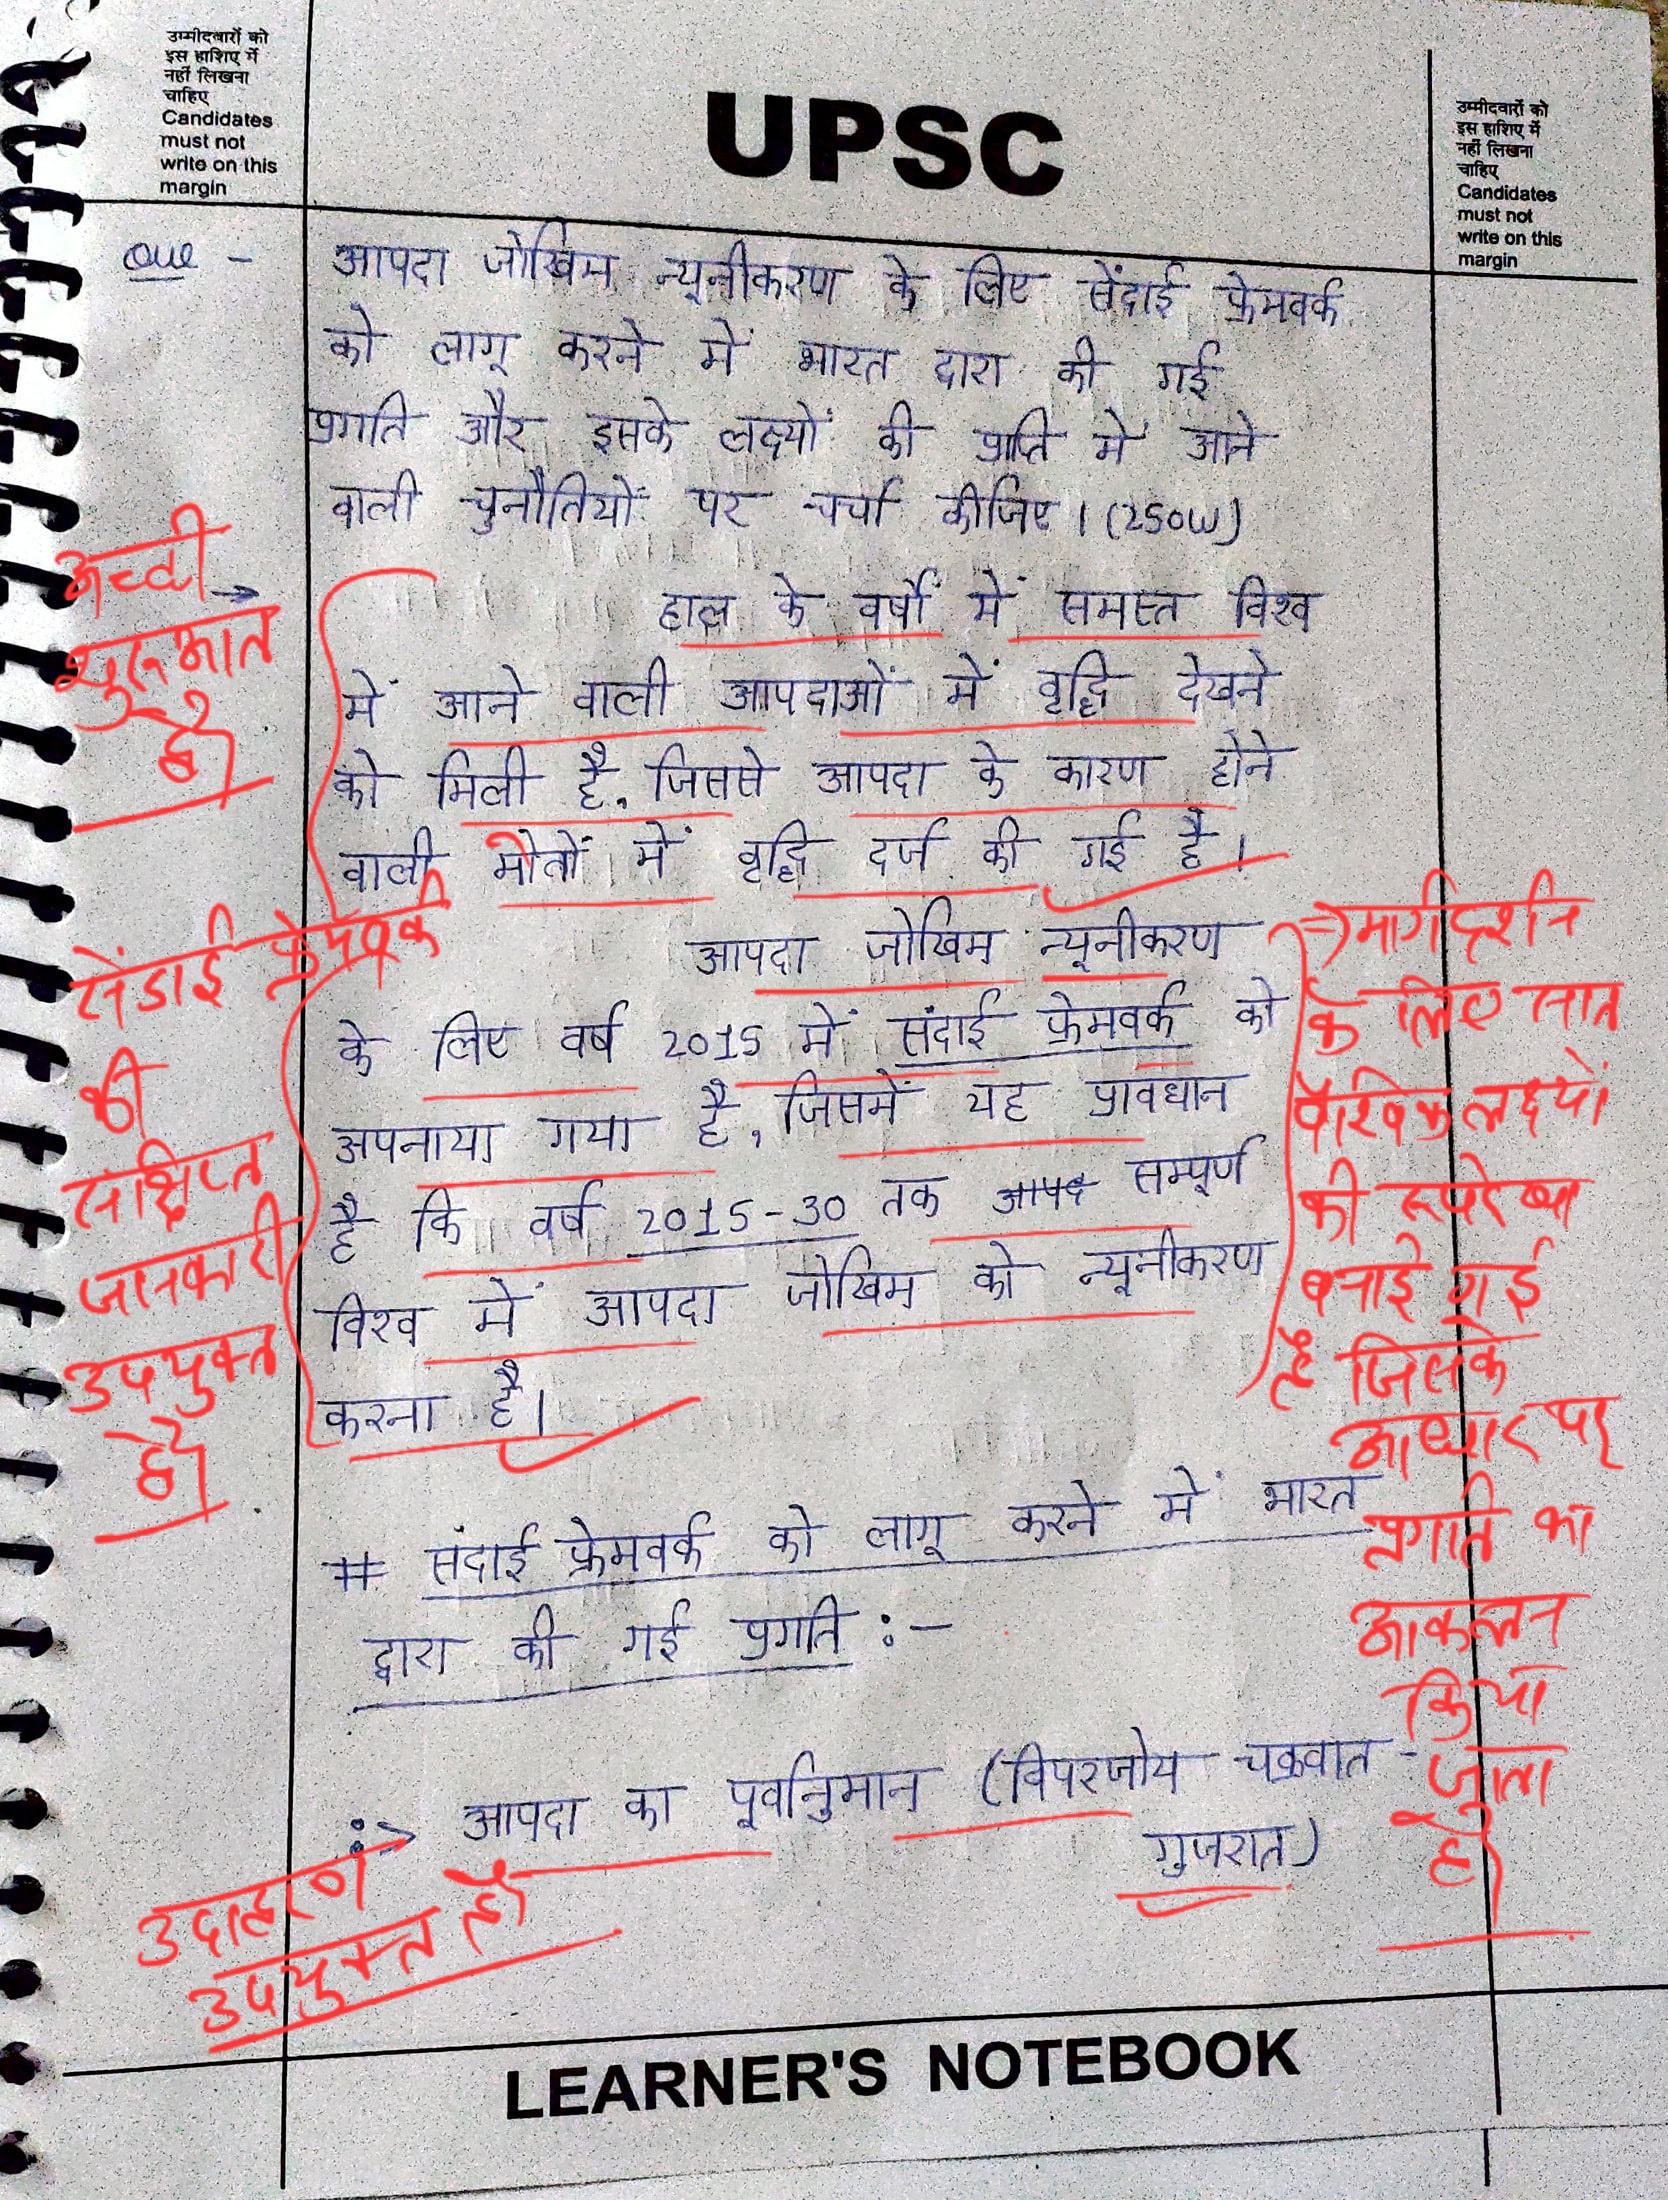 उम्मीदवारों को
इस हाशिए में
नहीं लिखना
चाहिए
Candidates
must not
write on this
margin
UPSC
उम्मीदवारों को
इस हाशिए में
नहीं लिखना
चाहिए
Candidates
must not
write on this
margin
Que - आपदा जोखिम न्यूनीकरण के लिए सेंदाई फ्रेमवर्क
को लागू करने में भारत द्वारा की गई
प्रगति और इसके लक्ष्यों की प्राप्ति में आने
वाली चुनौतियों पर चर्चा कीजिए। (250W)
अच्छी
शुरूआत
है।
हाल के वर्षों में समस्त विश्व
में आने वाली आपदाओं में वृद्धि देखने
को मिली है, जिससे आपदा के कारण होने
वाली मौतों में वृद्धि दर्ज की गई है।
सेंडाई फ्रेमवर्क
की
संक्षिप्त
जानकारी
उपयुक्त
है।
आपदा जोखिम न्यूनीकरण
के लिए वर्ष 2015 में सेंदाई फ्रेमवर्क को
अपनाया गया है, जिसमें यह प्रावधान
है कि वर्ष 2015-30 तक आपद सम्पूर्ण
विश्व में आपदा जोखिम को न्यूनीकरण
करना है।
→ मार्गदर्शन
के लिए सात
वैश्विक लक्ष्यों
की रूपरेखा
बनाई गई
है जिसके
आधार पर
प्रगति का
आकलन
किया
जाता
है।
# सेंदाई फ्रेमवर्क को लागू करने में भारत
द्वारा की गई प्रगति :-
आपदा का पूर्वानुमान (विपरजोय चक्रवात -
गुजरात)
उदाहरण
उपयुक्त है।
LEARNER'S NOTEBOOK